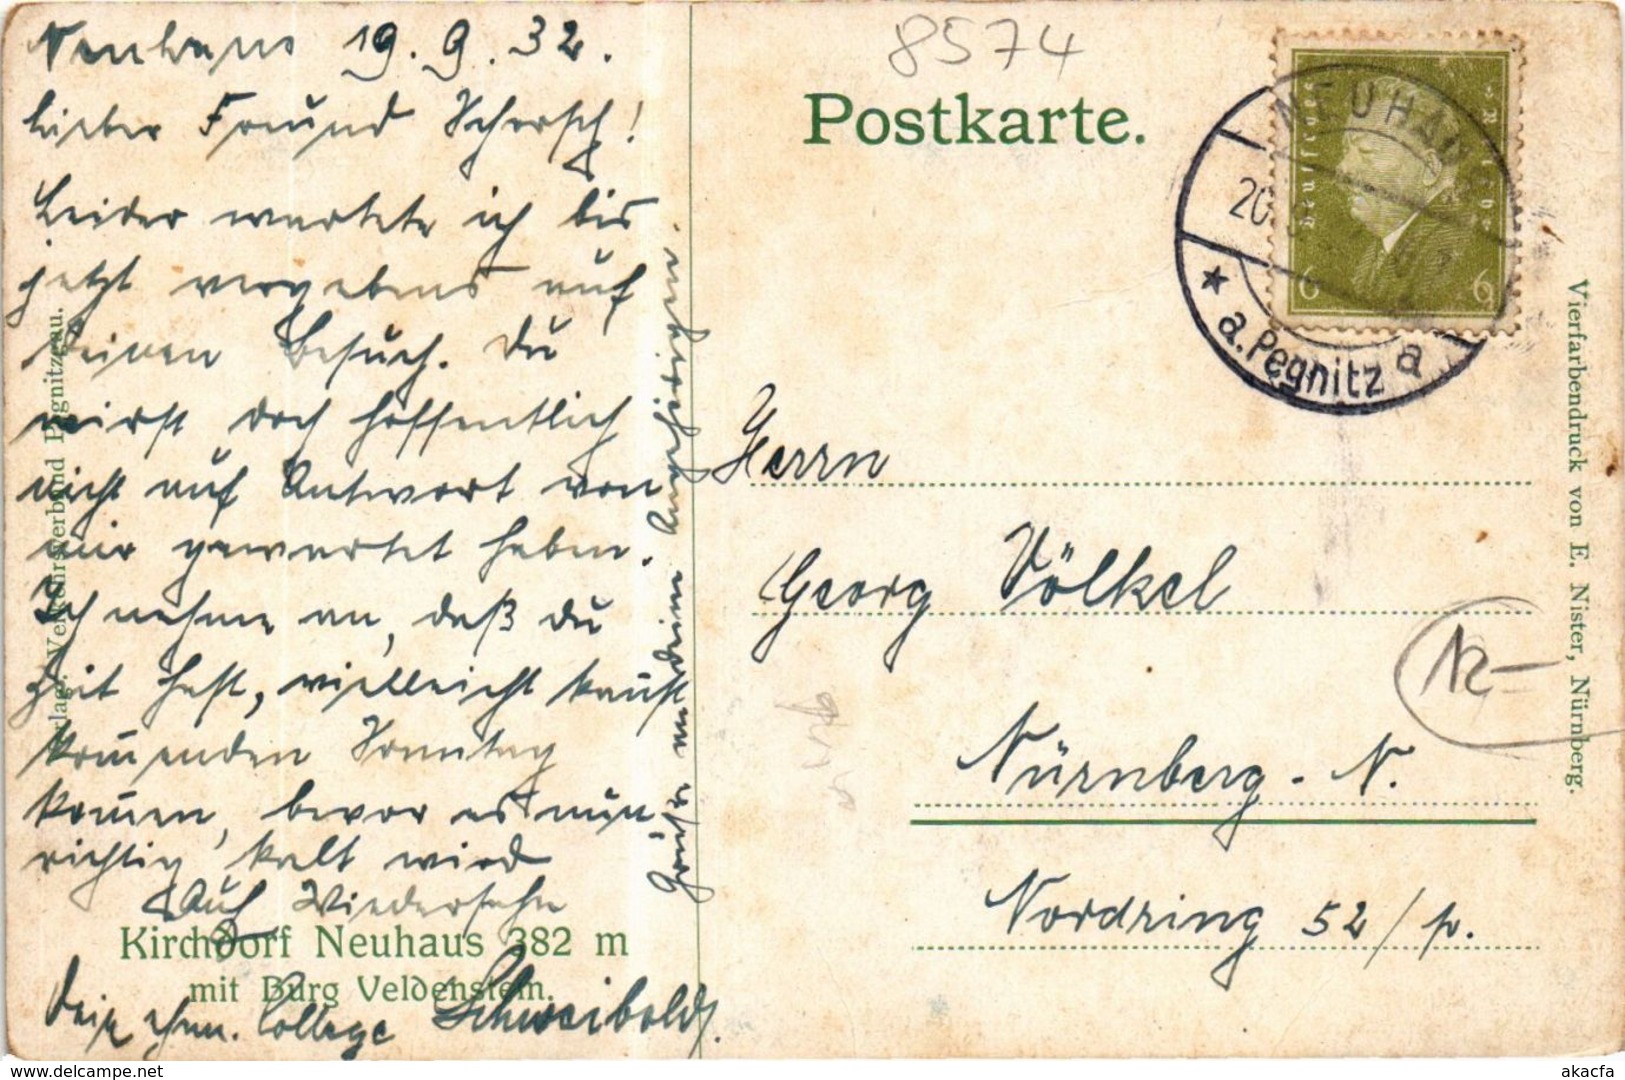 Neuhaus 19.9.32.
Lieber Freund Schorsch!
Leider wartete ich bis
jetzt vergebens auf
Deinen Besuch. Du
wirst doch hoffentlich
nicht auf Antwort von
mir gewartet haben.
Ich nehme an, daß du
Zeit hast, vielleicht kannst
kom̄enden Sonntag
kom̄en, bevor es nun
richtig kalt wird
Auf Wiedersehn
Dein ehm. College Schweibold
Grüße mir deine Angehörigen.
Kirchdorf Neuhaus 382 m
mit Burg Veldenstein.
Verlag: Verkehrsverband Pegnitzgau.
8574
Postkarte.
NEUHAUS
20
a. Pegnitz
a
Deutsches Reich
6 6
Herrn
Georg Völkel
Nürnberg-N.
Nordring 52/p.
12-
Vierfarbendruck von E. Nister, Nürnberg.
www.delcampe.net
akacfa